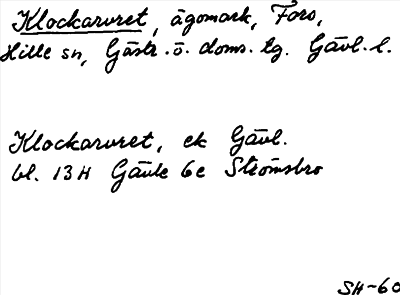 Klockarvret, ägomark, Fors,
Hille sn, Gästr. ö. doms. tg. Gävl. l.
Klockarvret, ek Gävl.
bl. 13H Gävle 6e Strömsbro
SH-60